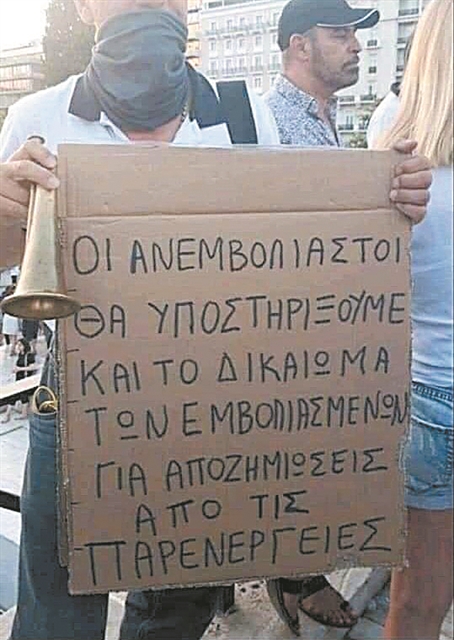 ΟΙ ΑΝΕΜΒΟΛΙΑΣΤΟΙ
ΘΑ ΥΠΟΣΤΗΡΙΞΟΥΜΕ
ΚΑΙ ΤΟ ΔΙΚΑΙΩΜΑ
ΤΩΝ ΕΜΒΟΛΙΑΣΜΕΝΩΝ
ΓΙΑ ΑΠΟΖΗΜΙΩΣΕΙΣ
ΑΠΟ ΤΙΣ
ΠΑΡΕΝΕΡΓΕΙΕΣ